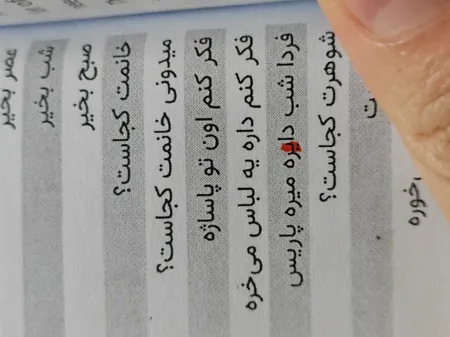 عصر بخیر
شب بخیر
صبح بخیر
خانمت کجاست؟
میدونی خانمت کجاست؟
فکر کنم اون تو پاساژه
فکر کنم داره یه لباس می‌خره
فردا شب دایره میره پاریس
شوهرت کجاست؟